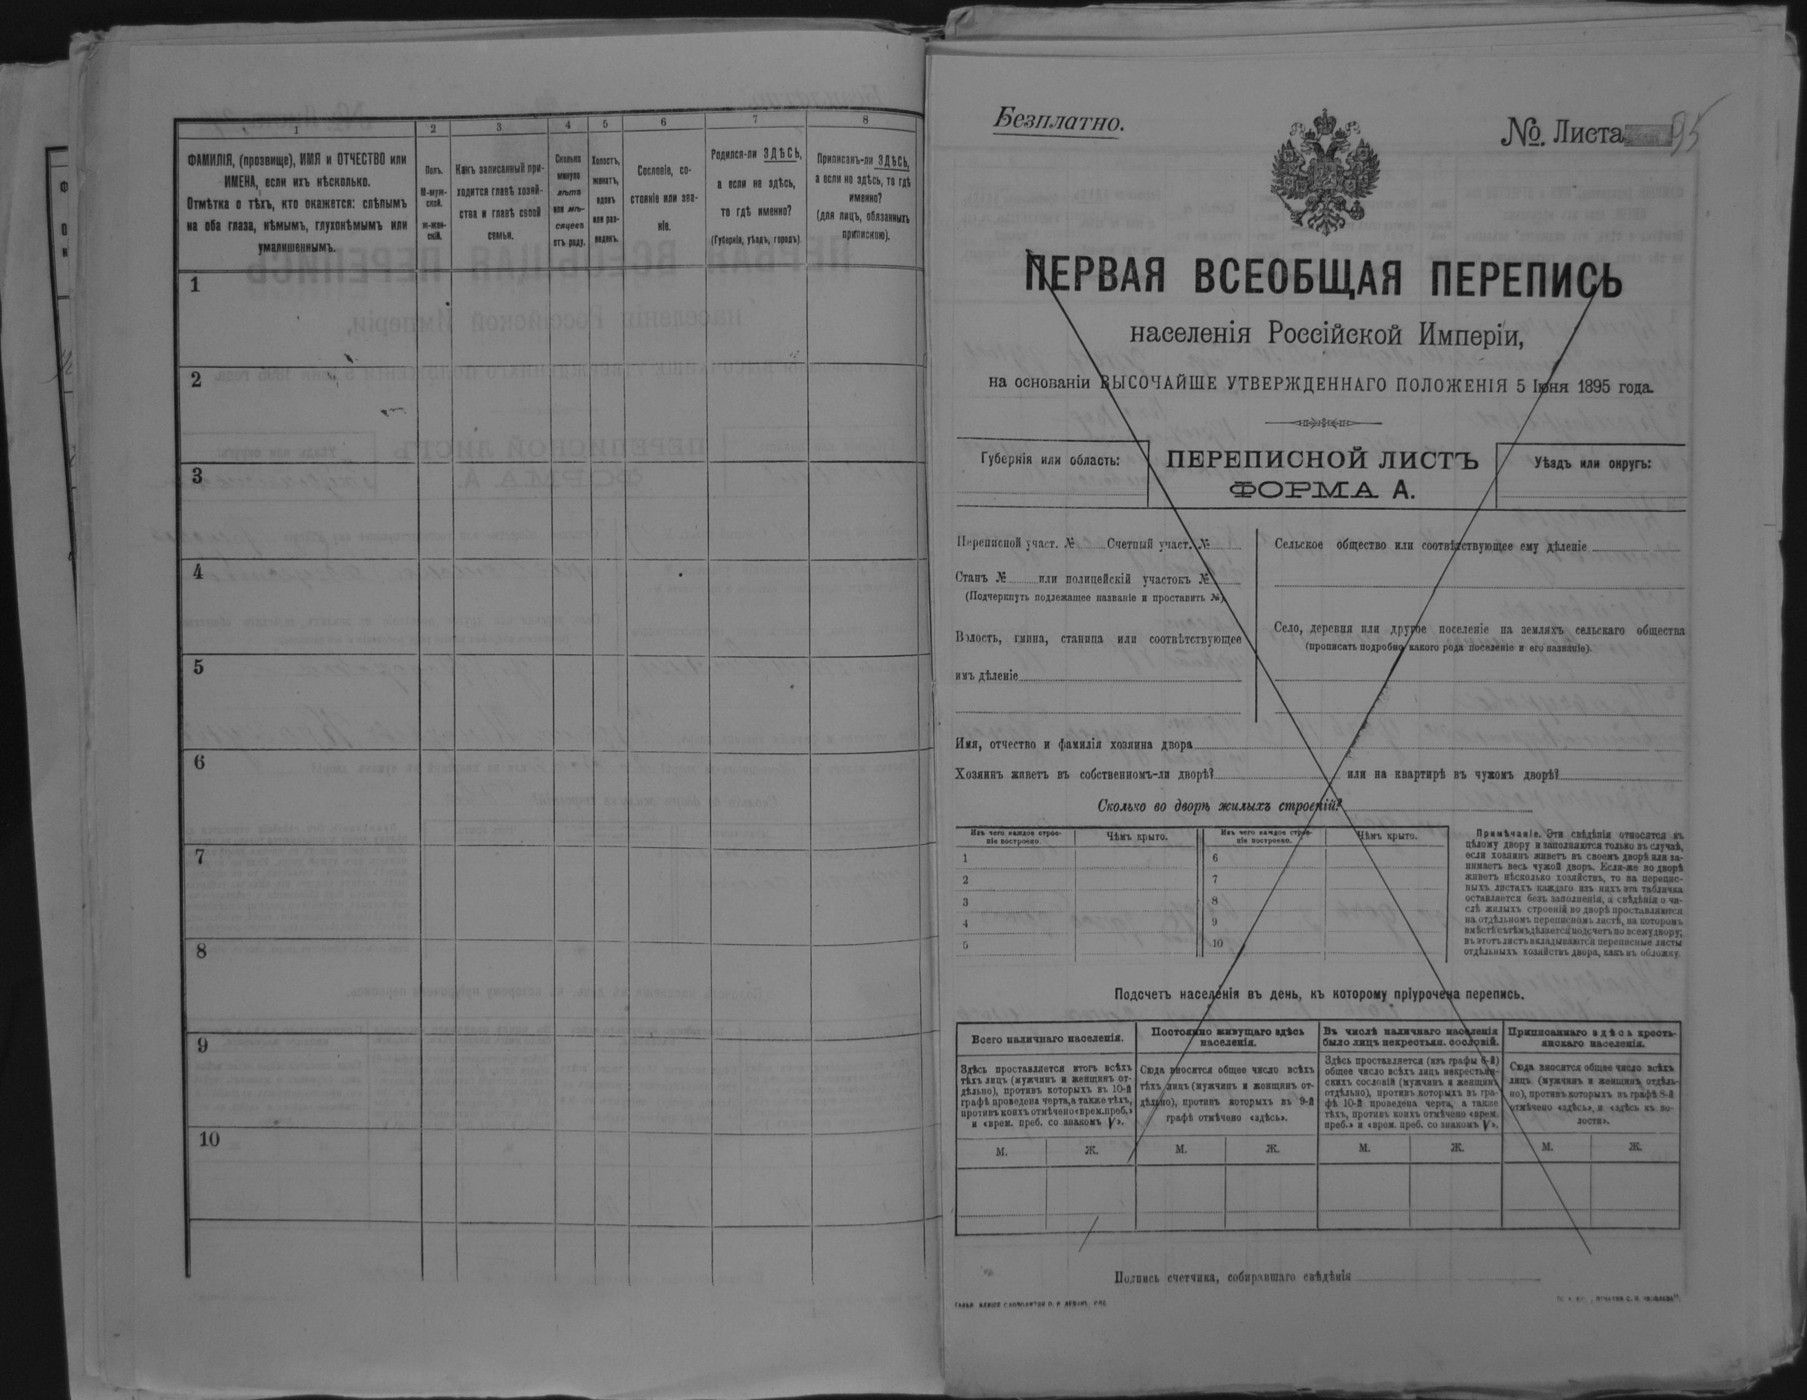 1 2 3 4 5 6 7 8
ФАМИЛІЯ, (прозвище), ИМЯ и ОТЧЕСТВО или
ИМЕНА, если ихъ нѣсколько.
Отмѣтка о тѣхъ, кто окажется: слѣпымъ
на оба глаза, нѣмымъ, глухонѣмымъ или
умалишеннымъ.
Полъ.
М-муж-
ской.
Ж-жен-
скій.
Какъ записанный при-
ходится главѣ хозяй-
ства и главѣ своей
семьи.
Сколько
минуло
лѣтъ
или мѣ-
сяцевъ
отъ роду.
Холостъ,
женатъ,
вдовъ
или раз-
веденъ.
Сословіе, со-
стояніе или зва-
ніе.
Родился-ли ЗДѢСЬ,
а если не здѣсь,
то гдѣ именно?
(Губернія, уѣздъ, городъ)
Приписанъ-ли ЗДѢСЬ,
а если не здѣсь, то гдѣ
именно?
(для лицъ, обязанныхъ
припискою).
1
2
3
4
5
6
7
8
9
10
Безплатно.
№. Листа 95
ПЕРВАЯ ВСЕОБЩАЯ ПЕРЕПИСЬ
населенія Россійской Имперіи,
на основаніи ВЫСОЧАЙШЕ УТВЕРЖДЕННАГО ПОЛОЖЕНІЯ 5 Іюня 1895 года.
Губернія или область:
ПЕРЕПИСНОЙ ЛИСТЪ
ФОРМА А.
Уѣздъ или округъ:
Переписной участ. № Счетный участ. №
Станъ № или полицейскій участокъ №
(Подчеркнуть подлежащее названіе и проставить №)
Волость, гмина, станица или соотвѣтствующее
имъ дѣленіе
Сельское общество или соотвѣтствующее ему дѣленіе
Село, деревня или другое поселеніе на земляхъ сельскаго общества
(прописать подробно какого рода поселеніе и его названіе).
Имя, отчество и фамилія хозяина двора
Хозяинъ живетъ въ собственномъ-ли дворѣ? или на квартирѣ въ чужомъ дворѣ?
Сколько во дворѣ жилыхъ строеній?
Изъ чего каждое строе-
ніе построено.
Чѣмъ крыто.
Изъ чего каждое строе-
ніе построено.
Чѣмъ крыто.
1 6
2 7
3 8
4 9
5 10
Примѣчаніе. Эти свѣдѣнія относятся къ
цѣлому двору и заполняются только въ случаѣ,
если хозяинъ живетъ въ своемъ дворѣ или за-
нимаетъ весь чужой дворъ. Если-же во дворѣ
живетъ нѣсколько хозяйствъ, то на перепис-
ныхъ листахъ каждаго изъ нихъ эта табличка
оставляется безъ заполненія, а свѣдѣнія о чи-
слѣ жилыхъ строеній во дворѣ проставляются
на отдѣльномъ переписномъ листѣ, на которомъ
вмѣстѣ съ тѣмъ дѣлается подсчетъ по всему двору;
въ этотъ листъ вкладываются переписные листы
отдѣльныхъ хозяйствъ двора, какъ въ обложку.
Подсчетъ населенія въ день, къ которому пріурочена перепись.
Всего наличнаго населенія.
Здѣсь проставляется итогъ всѣхъ
тѣхъ лицъ (мужчинъ и женщинъ от-
дѣльно), противъ которыхъ въ 10-й
графѣ проведена черта, а также тѣхъ,
противъ коихъ отмѣчено «врем. преб.»
и «врем. преб. со знакомъ V».
Постоянно живущаго здѣсь
населенія.
Сюда вносится общее число всѣхъ
тѣхъ лицъ (мужчинъ и женщинъ от-
дѣльно), противъ которыхъ въ 9-й
графѣ отмѣчено «здѣсь».
Въ числѣ наличнаго населенія
было лицъ некрестьян. сословій.
Здѣсь проставляется (изъ графы 6-й)
общее число всѣхъ лицъ некрестьян-
скихъ сословій (мужчинъ и женщинъ
отдѣльно), противъ которыхъ въ гра-
фѣ 10-й проведена черта, а также
тѣхъ, противъ коихъ отмѣчено «врем.
преб.» и «врем. преб. со знакомъ V».
Приписаннаго здѣсь кресть-
янскаго населенія.
Сюда вносится общее число всѣхъ
лицъ (мужчинъ и женщинъ отдѣль-
но), противъ которыхъ въ графѣ 8-й
отмѣчено «здѣсь», и «здѣсь къ во-
лости».
М. Ж. М. Ж. М. Ж. М. Ж.
Подпись счетчика, собиравшаго свѣдѣнія